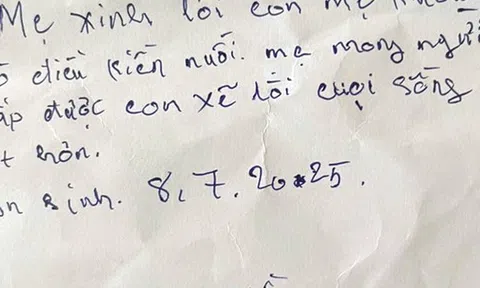 Mẹ xinh lỗi con mẹ
điều kiện nuôi. mẹ mong người
ấp được con xẽ lối cuọi sống
t hơn.
n sinh. 8, 7. 2025.